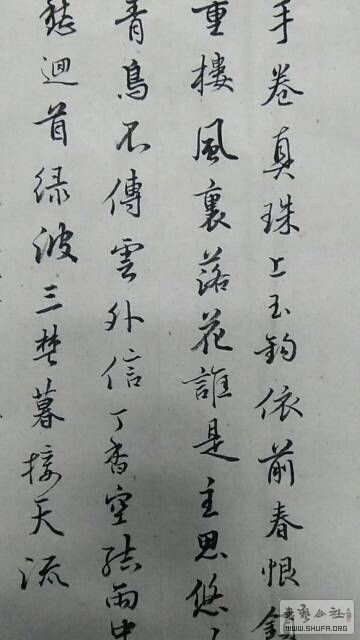 手卷真珠上玉鈎依前春恨鎖
重樓風裏落花誰是主思悠
青鳥不傳雲外信丁香空結雨中
愁迴首緑波三楚暮接天流
WWW.SHUFA.ORG